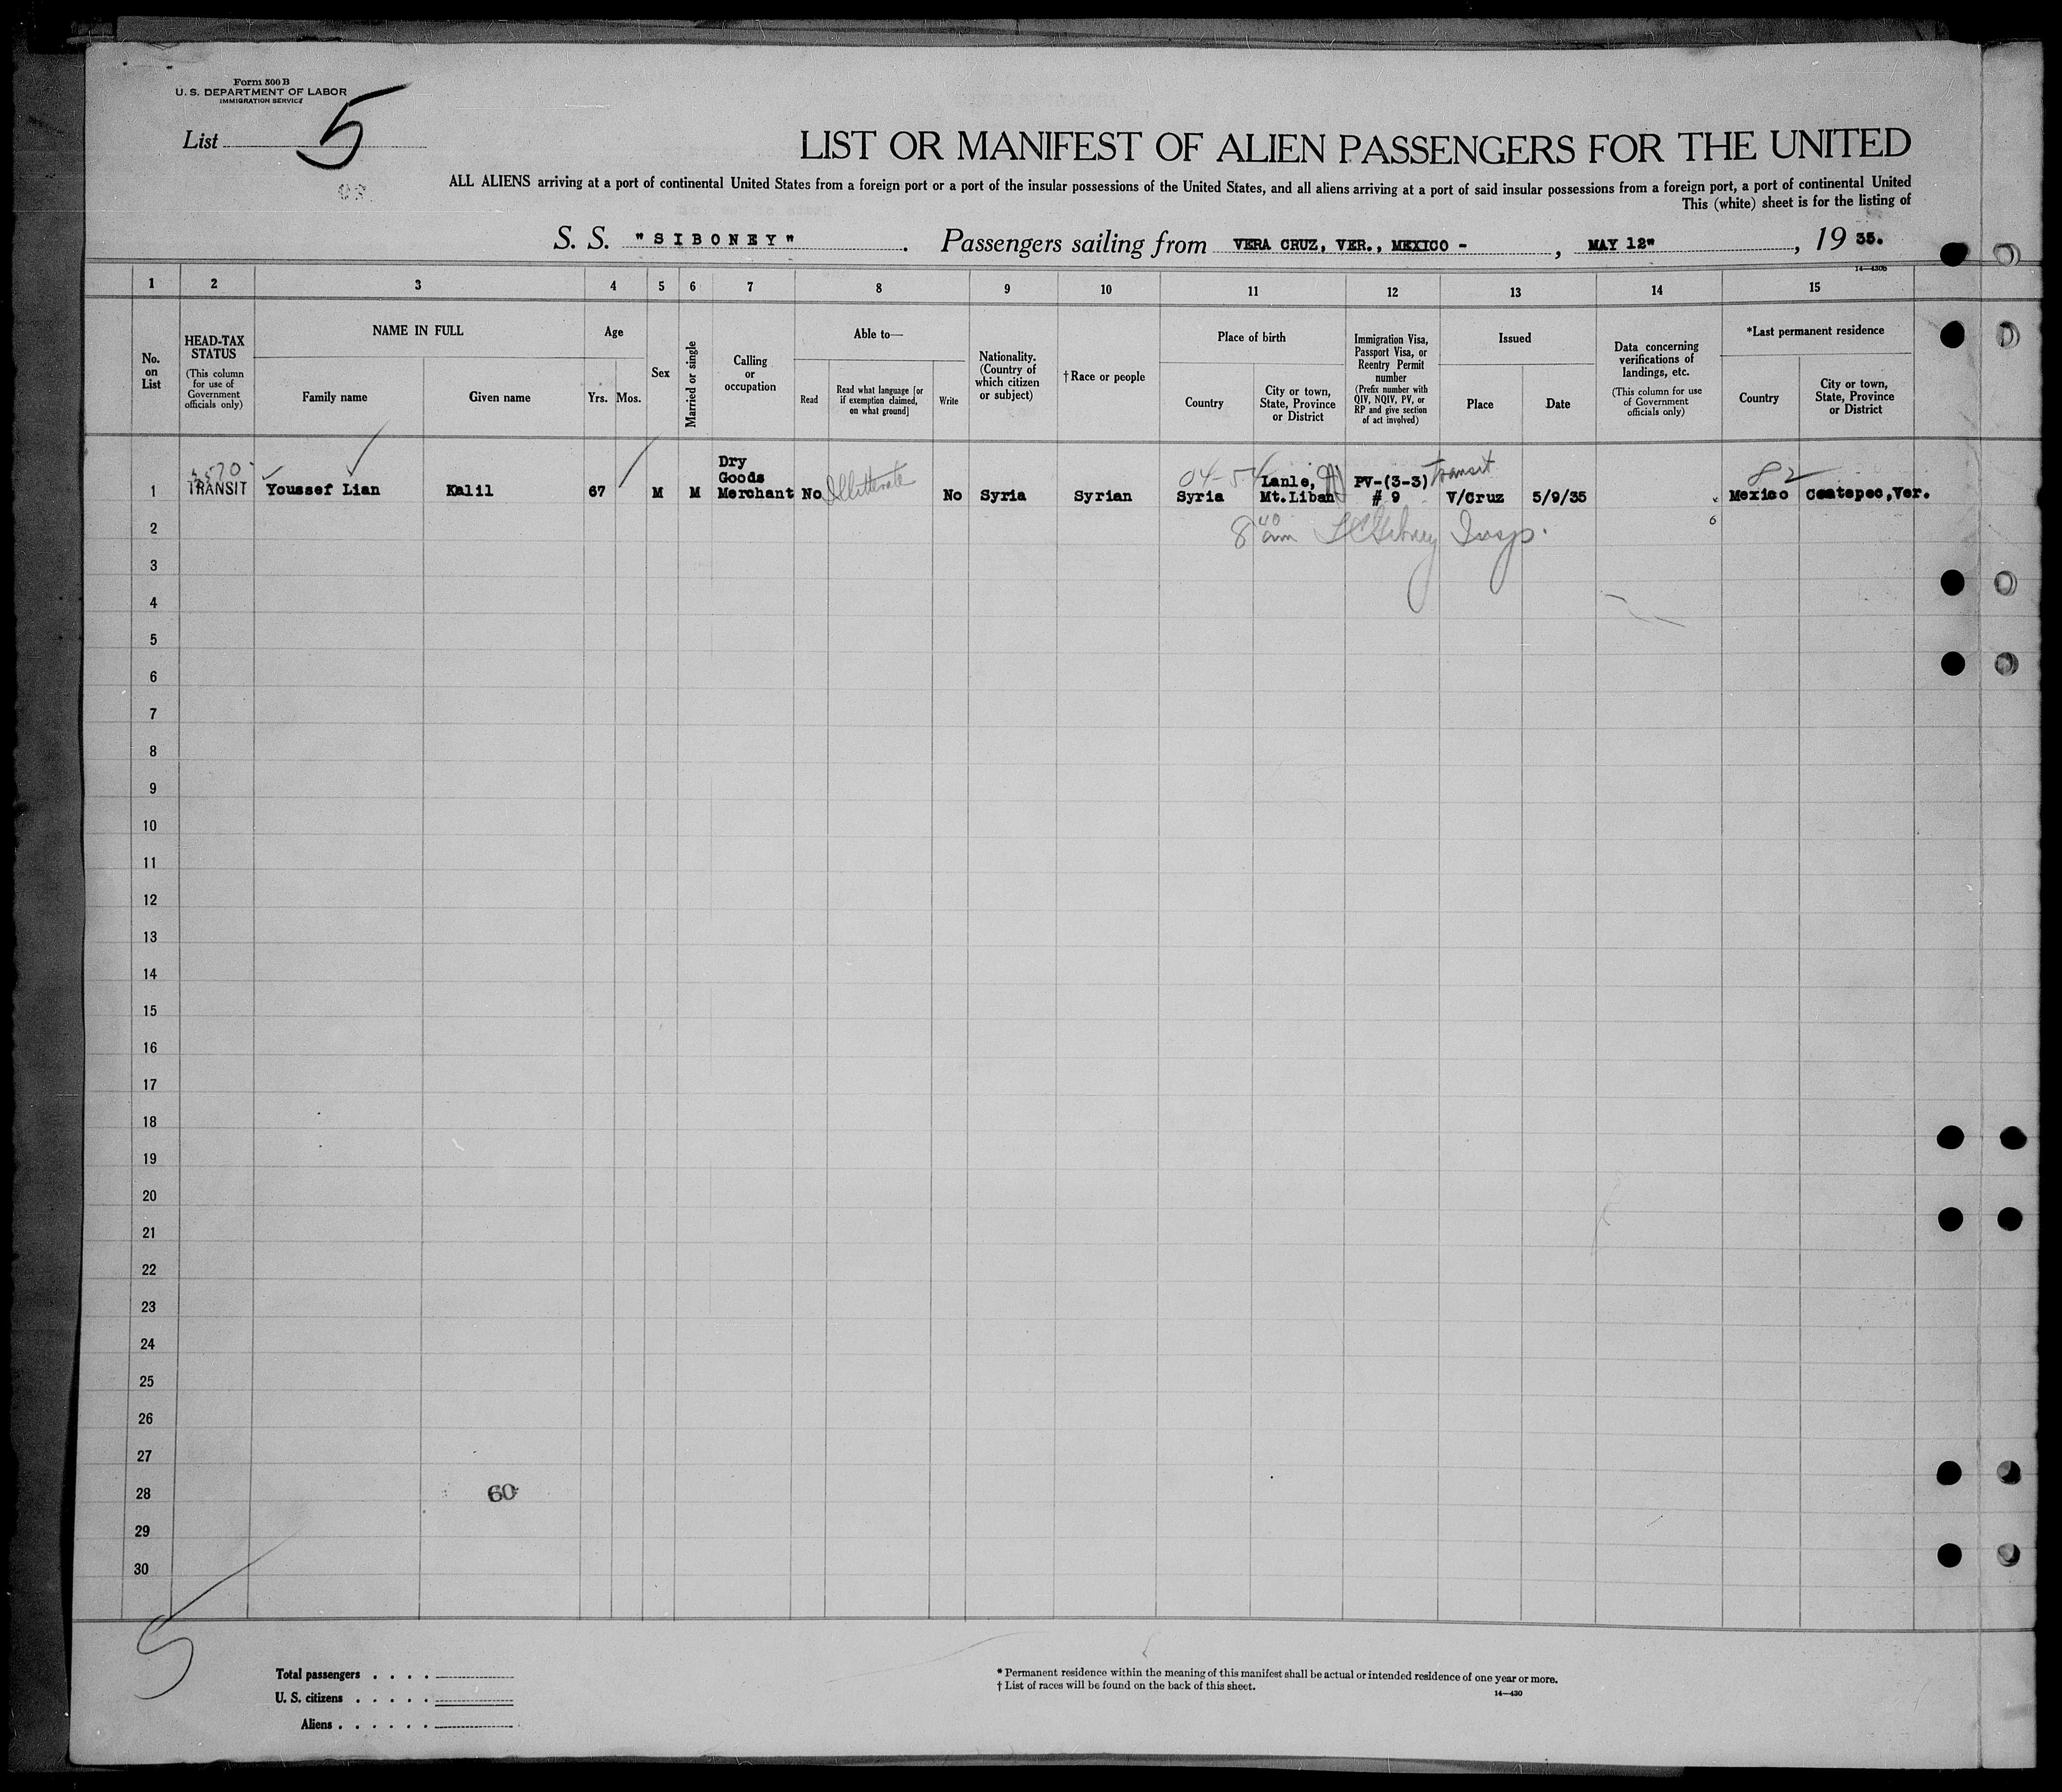 Form 500 B
U. S. DEPARTMENT OF LABOR
IMMIGRATION SERVICE
List 5
LIST OR MANIFEST OF ALIEN PASSENGERS FOR THE UNITED
ALL ALIENS arriving at a port of continental United States from a foreign port or a port of the insular possessions of the United States, and all aliens arriving at a port of said insular possessions from a foreign port, a port of continental United
This (white) sheet is for the listing of
S. S. "SIBONEY". Passengers sailing from VERA CRUZ, VER., MEXICO - , MAY 12" , 19 35.
14—430b
1 2 3 4 5 6 7 8 9 10 11 12 13 14 15
No. on List
HEAD-TAX STATUS
(This column for use of Government officials only)
NAME IN FULL
Family name
Given name
Age
Yrs. Mos.
Sex
Married or single
Calling or occupation
Able to—
Read
Read what language [or if exemption claimed, on what ground]
Write
Nationality. (Country of which citizen or subject)
†Race or people
Place of birth
Country
City or town, State, Province or District
Immigration Visa, Passport Visa, or Reentry Permit number
(Prefix number with QIV, NQIV, PV, or RP and give section of act involved)
Issued
Place
Date
Data concerning verifications of landings, etc.
(This column for use of Government officials only)
*Last permanent residence
Country
City or town, State, Province or District
1 TRANSIT Youssef Lian Kalil 67 M M Dry Goods Merchant No Illitterate No Syria Syrian 04-54 Syria Lanle, Mt.Liban PV-(3-3) # 9 Transit V/Cruz 5/9/35 82 Mexico Coatepec,Ver.
2 8 40 am Insp. 6
3
4
5
6
7
8
9
10
11
12
13
14
15
16
17
18
19
20
21
22
23
24
25
26
27
28 60
29
30
5
Total passengers . . . .
U. S. citizens . . . . .
Aliens . . . . . .
* Permanent residence within the meaning of this manifest shall be actual or intended residence of one year or more.
† List of races will be found on the back of this sheet.
14—430